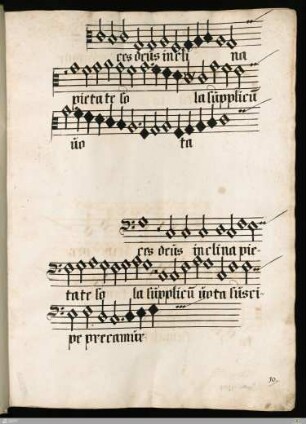 ces deus incli na
pietate so la supplicū
vo ta
ces deus inclina pie-
tate so la supplicū vota susci-
pe precamur